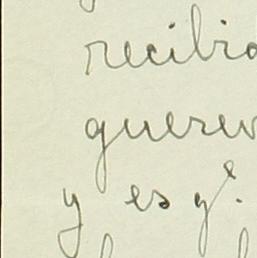 recibid
querer
y es q.e